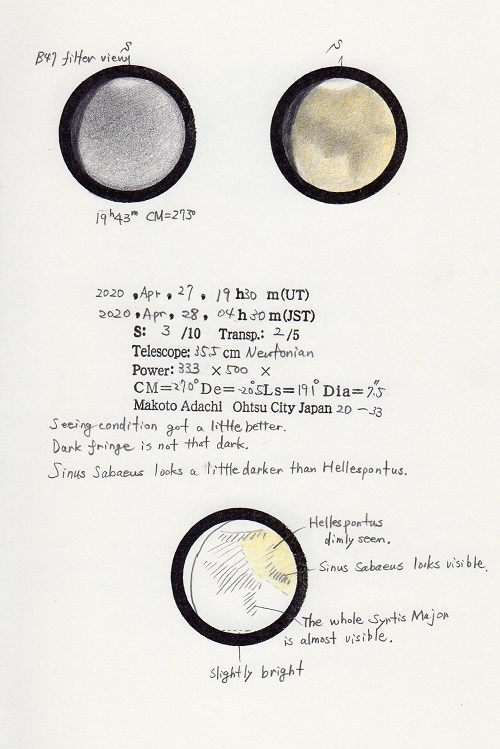 S
B47 filter view
S
19h43m CM=273°
2020 , Apr , 27 , 19 h30 m(UT)
2020 , Apr , 28 , 04 h 30 m(JST)
S: 3 /10 Transp.: 2 /5
Telescope: 35.5 cm Newtonian
Power: 333 × 500 ×
CM=270° De= -20°.5 Ls= 191° Dia= 7".5
Makoto Adachi Ohtsu City Japan 20 - 33
Seeing condition got a little better.
Dark fringe is not that dark.
Sinus Sabaeus looks a little darker than Hellespontus.
Hellespontus
dimly seen.
Sinus Sabaeus looks visible.
The whole Syrtis Major
is almost visible.
slightly bright